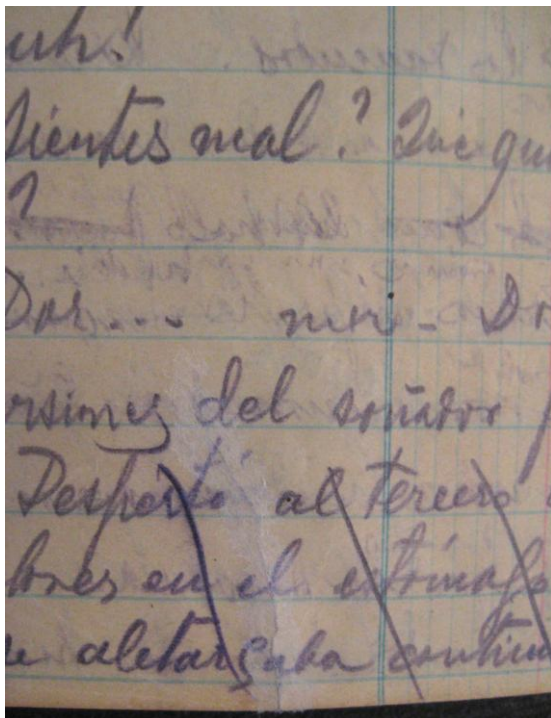 uh!
sientes mal? Qué qui
?
Dor... mir- Do
del soñador
Despertó al tercero
lores en el estómago
se aletargaba continu